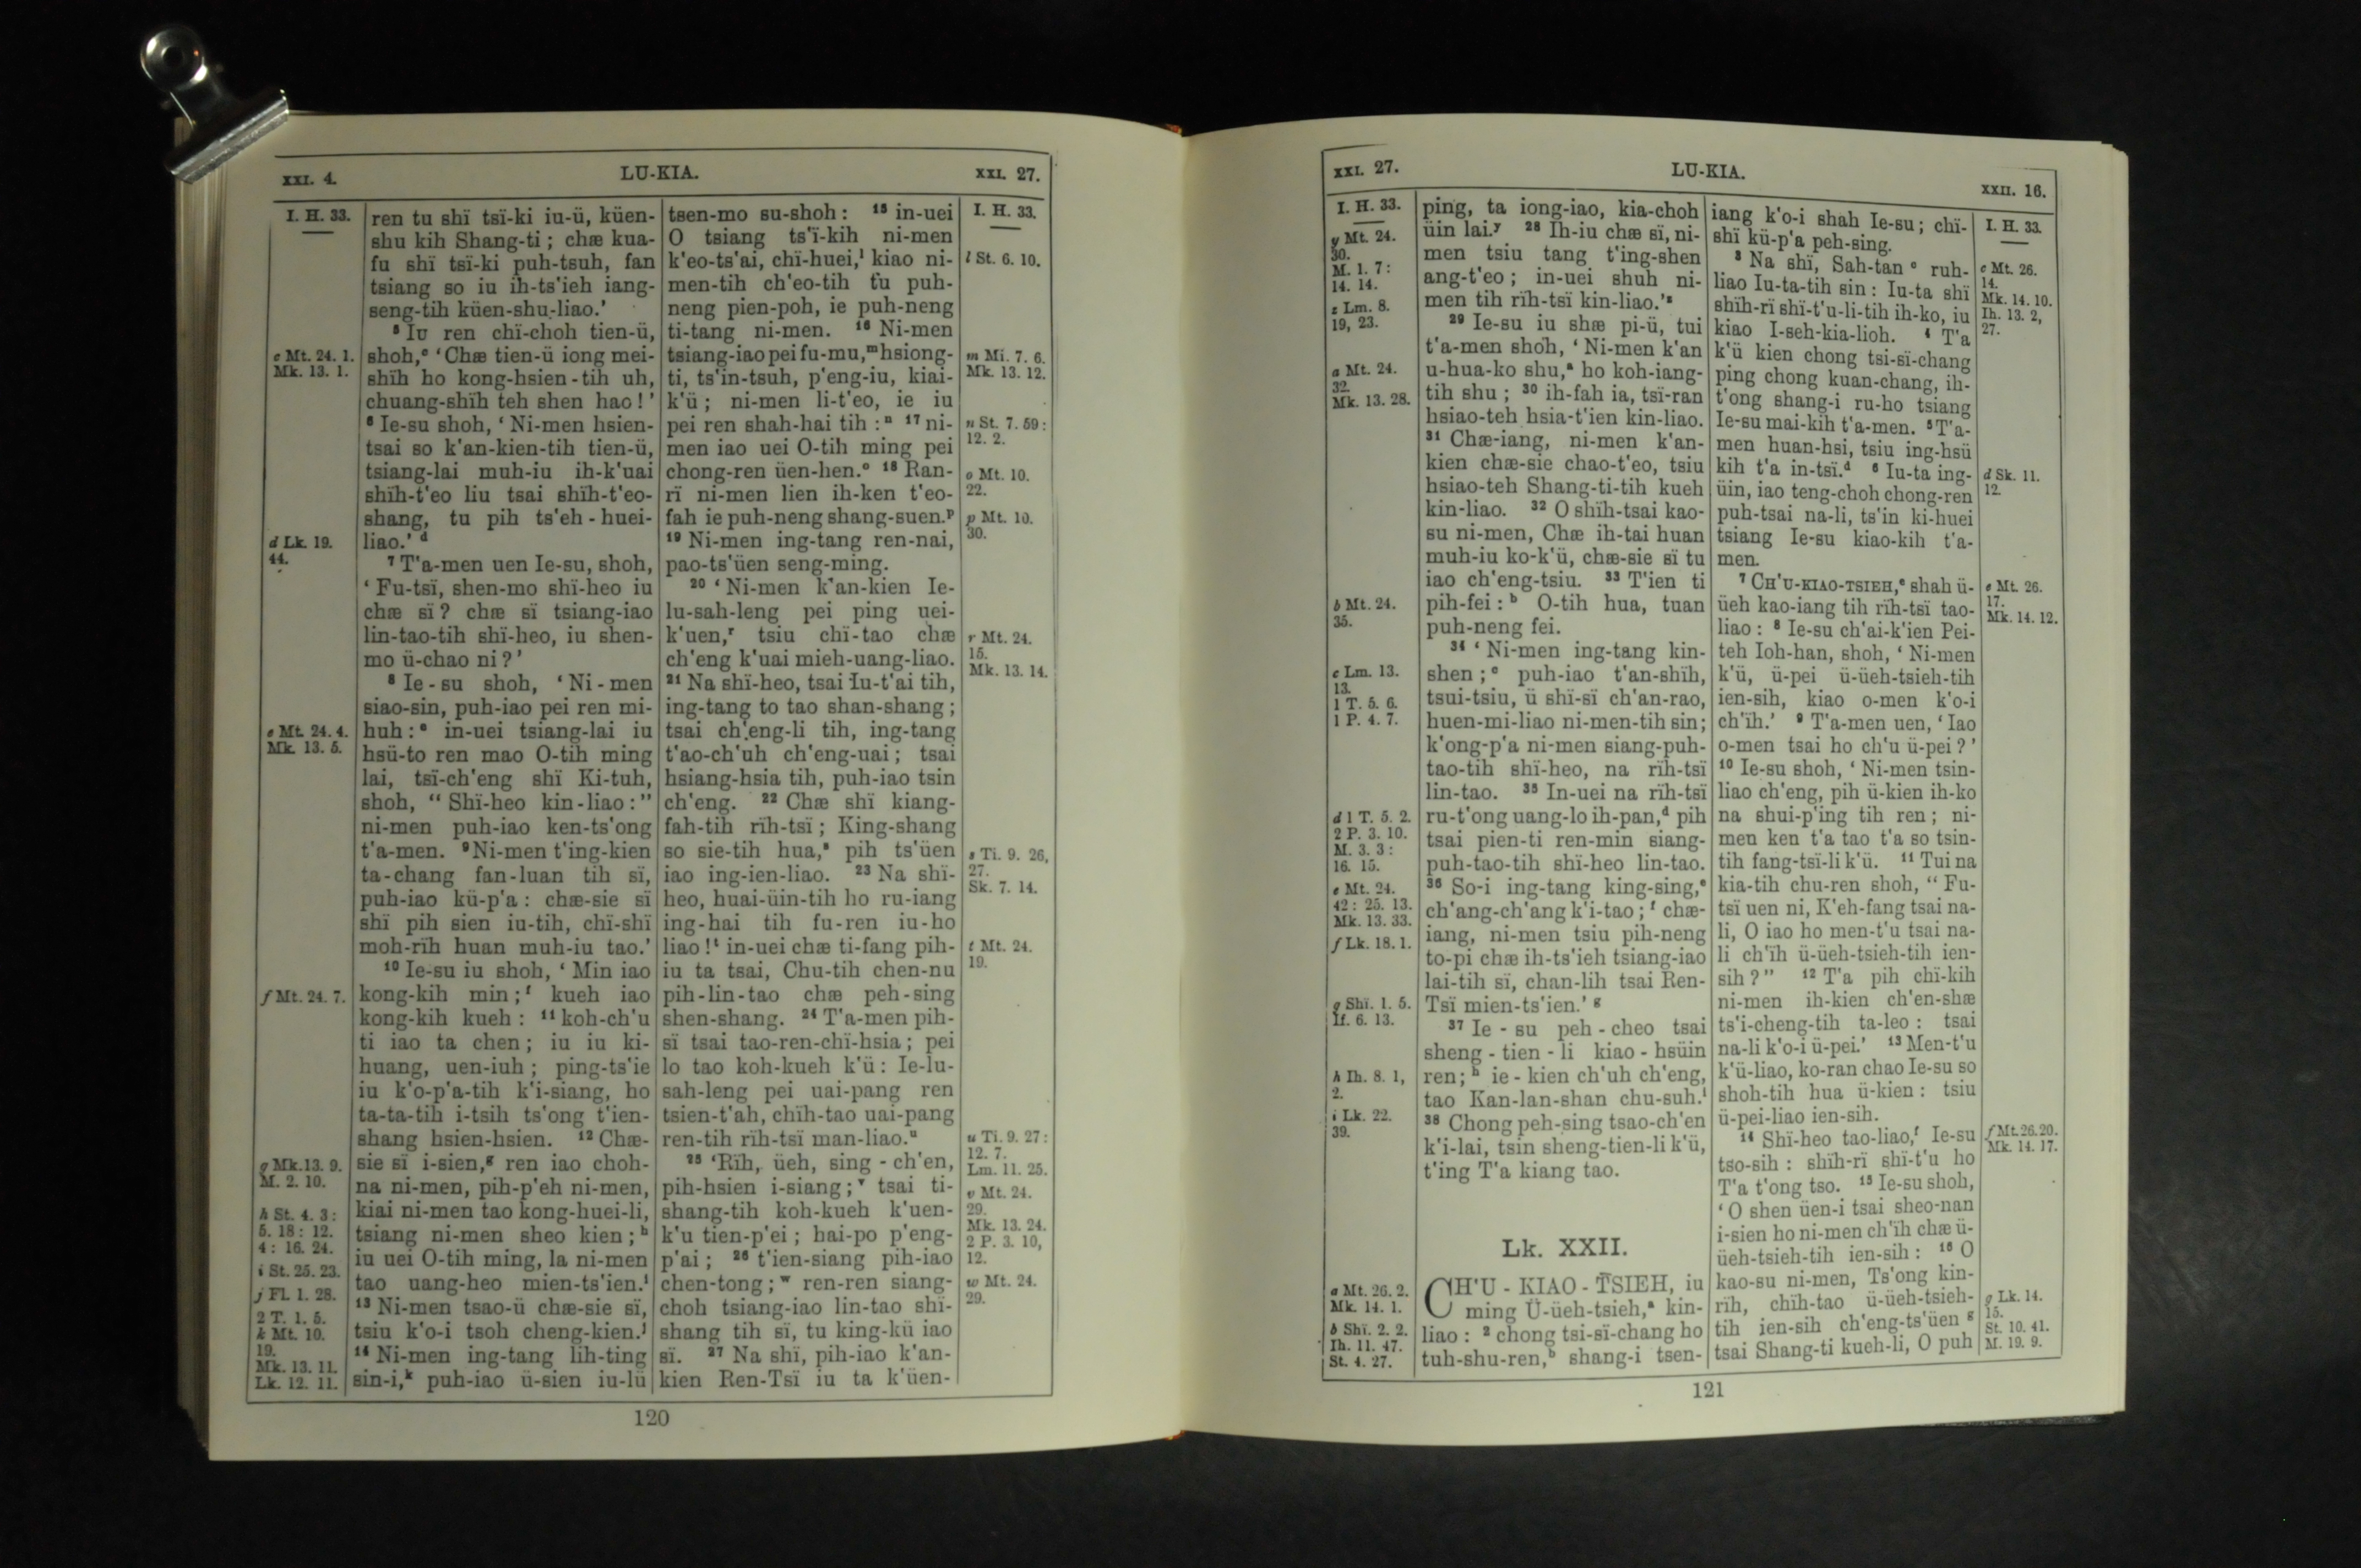 XXI. 4.
LU-KIA.
XXI. 27.
I. H. 33.
c Mt. 24. 1.
Mk. 13. 1.
d Lk. 19.
44.
e Mt. 24. 4.
Mk. 13. 5.
f Mt. 24. 7.
g Mk. 13. 9.
M. 2. 10.
h St. 4. 3:
5. 18: 12.
4: 16. 24.
i St. 25. 23.
j Fl. 1. 28.
2 T. 1. 5.
k Mt. 10.
19.
Mk. 13. 11.
Lk. 12. 11.
ren tu shï tsï-ki iu-ü, küen-
shu kih Shang-ti; chæ kua-
fu shï tsï-ki puh-tsuh, fan
tsiang so iu ih-ts'ieh iang-
seng-tih küen-shu-liao.'
⁵ Iu ren chï-choh tien-ü,
shoh,ᶜ 'Chæ tien-ü iong mei-
shïh ho kong-hsien-tih uh,
chuang-shïh teh shen hao!'
⁶ Ie-su shoh, 'Ni-men hsien-
tsai so k'an-kien-tih tien-ü,
tsiang-lai muh-iu ih-k'uai
shïh-t'eo liu tsai shïh-t'eo-
shang, tu pih ts'eh-huei-
liao.'ᵈ
⁷ T'a-men uen Ie-su, shoh,
'Fu-tsï, shen-mo shï-heo iu
chæ sï? chæ sï tsiang-iao
lin-tao-tih shï-heo, iu shen-
mo ü-chao ni?'
⁸ Ie-su shoh, 'Ni-men
siao-sin, puh-iao pei ren mi-
huh:ᵉ in-uei tsiang-lai iu
hsü-to ren mao O-tih ming
lai, tsï-ch'eng shï Ki-tuh,
shoh, "Shï-heo kin-liao:"
ni-men puh-iao ken-ts'ong
t'a-men. ⁹Ni-men t'ing-kien
ta-chang fan-luan tih sï,
puh-iao kü-p'a: chæ-sie sï
shï pih sien iu-tih, chï-shï
moh-rïh huan muh-iu tao.'
¹⁰ Ie-su iu shoh, 'Min iao
kong-kih min;ᶠ kueh iao
kong-kih kueh: ¹¹ koh-ch'u
ti iao ta chen; iu iu ki-
huang, uen-iuh; ping-ts'ie
iu k'o-p'a-tih k'i-siang, ho
ta-ta-tih i-tsih ts'ong t'ien-
shang hsien-hsien. ¹² Chæ-
sie sï i-sien,ᵍ ren iao choh-
na ni-men, pih-p'eh ni-men,
kiai ni-men tao kong-huei-li,
tsiang ni-men sheo kien;ʰ
iu uei O-tih ming, la ni-men
tao uang-heo mien-ts'ien.ⁱ
¹³ Ni-men tsao-ü chæ-sie sï,
tsiu k'o-i tsoh cheng-kien.ʲ
¹⁴ Ni-men ing-tang lih-ting
sin-i,ᵏ puh-iao ü-sien iu-lü
tsen-mo su-shoh: ¹⁵ in-uei
O tsiang ts'ï-kih ni-men
k'eo-ts'ai, chï-huei,ˡ kiao ni-
men-tih ch'eo-tih tu puh-
neng pien-poh, ie puh-neng
ti-tang ni-men. ¹⁶ Ni-men
tsiang-iao pei fu-mu,ᵐ hsiong-
ti, ts'in-tsuh, p'eng-iu, kiai-
k'ü; ni-men li-t'eo, ie iu
pei ren shah-hai tih:ⁿ ¹⁷ ni-
men iao uei O-tih ming pei
chong-ren üen-hen.ᵒ ¹⁸ Ran-
rï ni-men lien ih-ken t'eo-
fah ie puh-neng shang-suen.ᵖ
¹⁹ Ni-men ing-tang ren-nai,
pao-ts'üen seng-ming.
²⁰ 'Ni-men k'an-kien Ie-
lu-sah-leng pei ping uei-
k'uen,ʳ tsiu chï-tao chæ
ch'eng k'uai mieh-uang-liao.
²¹ Na shï-heo, tsai Iu-t'ai tih,
ing-tang to tao shan-shang;
tsai ch'eng-li tih, ing-tang
t'ao-ch'uh ch'eng-uai; tsai
hsiang-hsia tih, puh-iao tsin
ch'eng. ²² Chæ shï kiang-
fah-tih rïh-tsï; King-shang
so sie-tih hua,ˢ pih ts'üen
iao ing-ien-liao. ²³ Na shï-
heo, huai-üin-tih ho ru-iang
ing-hai tih fu-ren iu-ho
liao!ᵗ in-uei chæ ti-fang pih-
iu ta tsai, Chu-tih chen-nu
pih-lin-tao chæ peh-sing
shen-shang. ²⁴ T'a-men pih-
sï tsai tao-ren-chï-hsia; pei
lo tao koh-kueh k'ü: Ie-lu-
sah-leng pei uai-pang ren
tsien-t'ah, chïh-tao uai-pang
ren-tih rïh-tsï man-liao.ᵘ
²⁵ 'Rïh, üeh, sing-ch'en,
pih-hsien i-siang;ᵛ tsai ti-
shang-tih koh-kueh k'uen-
k'u tien-p'ei; hai-po p'eng-
p'ai; ²⁶ t'ien-siang pih-iao
chen-tong;ʷ ren-ren siang-
choh tsiang-iao lin-tao shï-
shang tih sï, tu king-kü iao
sï. ²⁷ Na shï, pih-iao k'an-
kien Ren-Tsï iu ta k'üen-
I. H. 33.
l St. 6. 10.
m Mi. 7. 6.
Mk. 13. 12.
n St. 7. 59:
12. 2.
o Mt. 10.
22.
p Mt. 10.
30.
r Mt. 24.
15.
Mk. 13. 14.
s Ti. 9. 26,
27.
Sk. 7. 14.
t Mt. 24.
19.
u Ti. 9. 27:
12. 7.
Lm. 11. 25.
v Mt. 24.
29.
Mk. 13. 24.
2 P. 3. 10,
12.
w Mt. 24.
29.
120
XXI. 27.
LU-KIA.
XXII. 16.
I. H. 33.
y Mt. 24.
30.
M. 1. 7:
14. 14.
z Lm. 8.
19, 23.
a Mt. 24.
32.
Mk. 13. 28.
b Mt. 24.
35.
c Lm. 13.
13.
1 T. 5. 6.
1 P. 4. 7.
d 1 T. 5. 2.
2 P. 3. 10.
M. 3. 3:
16. 15.
e Mt. 24.
42: 25. 13.
Mk. 13. 33.
f Lk. 18. 1.
g Shï. 1. 5.
If. 6. 13.
h Ih. 8. 1,
2.
i Lk. 22.
39.
a Mt. 26. 2.
Mk. 14. 1.
b Shï. 2. 2.
Ih. 11. 47.
St. 4. 27.
ping, ta iong-iao, kia-choh
üin lai.ʸ ²⁸ Ih-iu chæ sï, ni-
men tsiu tang t'ing-shen
ang-t'eo; in-uei shuh ni-
men tih rïh-tsï kin-liao.'ᶻ
²⁹ Ie-su iu shæ pi-ü, tui
t'a-men shoh, 'Ni-men k'an
u-hua-ko shu,ᵃ ho koh-iang-
tih shu; ³⁰ ih-fah ia, tsï-ran
hsiao-teh hsia-t'ien kin-liao.
³¹ Chæ-iang, ni-men k'an-
kien chæ-sie chao-t'eo, tsiu
hsiao-teh Shang-ti-tih kueh
kin-liao. ³² O shïh-tsai kao-
su ni-men, Chæ ih-tai huan
muh-iu ko-k'ü, chæ-sie sï tu
iao ch'eng-tsiu. ³³ T'ien ti
pih-fei:ᵇ O-tih hua, tuan
puh-neng fei.
³⁴ 'Ni-men ing-tang kin-
shen;ᶜ puh-iao t'an-shïh,
tsui-tsiu, ü shï-sï ch'an-rao,
huen-mi-liao ni-men-tih sin;
k'ong-p'a ni-men siang-puh-
tao-tih shï-heo, na rïh-tsï
lin-tao. ³⁵ In-uei na rïh-tsï
ru-t'ong uang-lo ih-pan,ᵈ pih
tsai pien-ti ren-min siang-
puh-tao-tih shï-heo lin-tao.
³⁶ So-i ing-tang king-sing,ᵉ
ch'ang-ch'ang k'i-tao;ᶠ chæ-
iang, ni-men tsiu pih-neng
to-pi chæ ih-ts'ieh tsiang-iao
lai-tih sï, chan-lih tsai Ren-
Tsï mien-ts'ien.'ᵍ
³⁷ Ie-su peh-cheo tsai
sheng-tien-li kiao-hsüin
ren;ʰ ie-kien ch'uh ch'eng,
tao Kan-lan-shan chu-suh.ⁱ
³⁸ Chong peh-sing tsao-ch'en
k'i-lai, tsin sheng-tien-li k'ü,
t'ing T'a kiang tao.
Lk. XXII.
CH'U-KIAO-TSIEH, iu
ming Ü-üeh-tsieh,ᵃ kin-
liao: ² chong tsi-sï-chang ho
tuh-shu-ren,ᵇ shang-i tsen-
iang k'o-i shah Ie-su; chï-
shï kü-p'a peh-sing.
³ Na shï, Sah-tanᶜ ruh-
liao Iu-ta-tih sin: Iu-ta shï
shïh-rï shï-t'u-li-tih ih-ko, iu
kiao I-seh-kia-lioh. ⁴ T'a
k'ü kien chong tsi-sï-chang
ping chong kuan-chang, ih-
t'ong shang-i ru-ho tsiang
Ie-su mai-kih t'a-men. ⁵T'a-
men huan-hsi, tsiu ing-hsü
kih t'a in-tsï.ᵈ ⁶ Iu-ta ing-
üin, iao teng-choh chong-ren
puh-tsai na-li, ts'in ki-huei
tsiang Ie-su kiao-kih t'a-
men.
⁷ CH'U-KIAO-TSIEH,ᵉ shah ü-
üeh kao-iang tih rïh-tsï tao-
liao: ⁸ Ie-su ch'ai-k'ien Pei-
teh Ioh-han, shoh, 'Ni-men
k'ü, ü-pei ü-üeh-tsieh-tih
ien-sih, kiao o-men k'o-i
ch'ïh.' ⁹ T'a-men uen, 'Iao
o-men tsai ho ch'u ü-pei?'
¹⁰ Ie-su shoh, 'Ni-men tsin-
liao ch'eng, pih ü-kien ih-ko
na shui-p'ing tih ren; ni-
men ken t'a tao t'a so tsin-
tih fang-tsï-li k'ü. ¹¹ Tui na
kia-tih chu-ren shoh, "Fu-
tsï uen ni, K'eh-fang tsai na-
li, O iao ho men-t'u tsai na-
li ch'ïh ü-üeh-tsieh-tih ien-
sih?" ¹² T'a pih chï-kih
ni-men ih-kien ch'en-shæ
ts'i-cheng-tih ta-leo: tsai
na-li k'o-i ü-pei.' ¹³ Men-t'u
k'ü-liao, ko-ran chao Ie-su so
shoh-tih hua ü-kien: tsiu
ü-pei-liao ien-sih.
¹⁴ Shï-heo tao-liao,ᶠ Ie-su
tso-sih: shïh-rï shï-t'u ho
T'a t'ong tso. ¹⁵ Ie-su shoh,
'O shen üen-i tsai sheo-nan
i-sien ho ni-men ch'ïh chæ ü-
üeh-tsieh-tih ien-sih: ¹⁶ O
kao-su ni-men, Ts'ong kin-
rïh, chïh-tao ü-üeh-tsieh-
tih ien-sih ch'eng-ts'üenᵍ
tsai Shang-ti kueh-li, O puh
I. H. 33.
c Mt. 26.
14.
Mk. 14. 10.
Ih. 13. 2,
27.
d Sk. 11.
12.
e Mt. 26.
17.
Mk. 14. 12.
f Mt. 26. 20.
Mk. 14. 17.
g Lk. 14.
15.
St. 10. 41.
M. 19. 9.
121